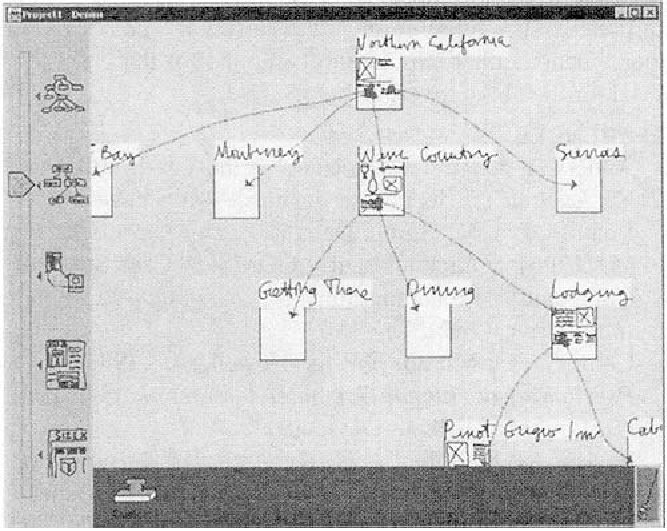 Project1 Denim
Northern California
Bay
Monterey
Wine Country
Sierras
Getting There
Dining
Lodging
Pinot Grigio Inn
Cab